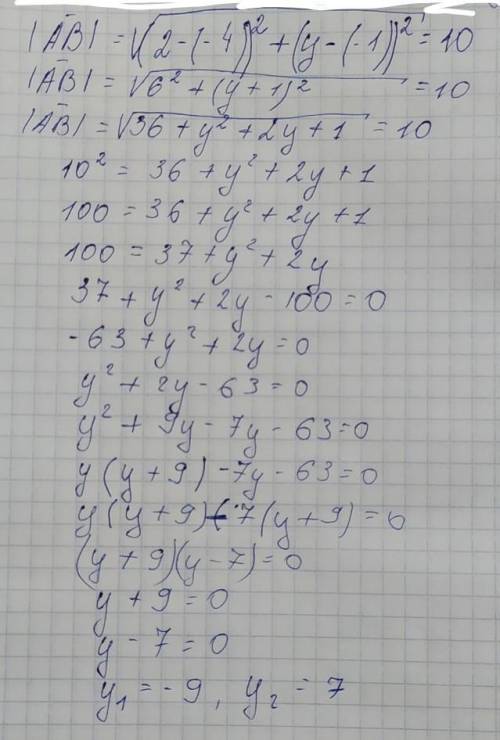 |A̅B̅| = √(2-(-4))² + (y-(-1))² = 10
|A̅B̅| = √6² + (y+1)² = 10
|A̅B̅| = √36 + y² + 2y + 1 = 10
10² = 36 + y² + 2y + 1
100 = 36 + y² + 2y + 1
100 = 37 + y² + 2y
37 + y² + 2y - 100 = 0
-63 + y² + 2y = 0
y² + 2y - 63 = 0
y² + 9y - 7y - 63 = 0
y(y+9) - 7y - 63 = 0
y(y+9) - 7(y+9) = 0
(y+9)(y-7) = 0
y + 9 = 0
y - 7 = 0
y₁ = -9, y₂ = 7